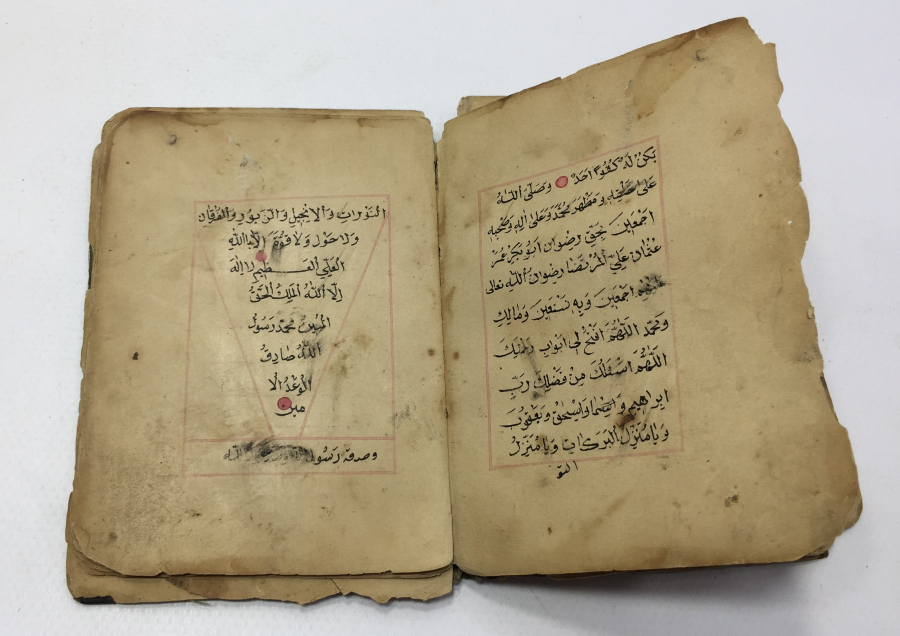 يكن له كفوا احد وصلى الله
على مظهر محمد وعلى اله وصحبه
اجمعين بحق رضوان ابو بكر عمر
عثمان علي المرتضا رضوان الله تعالى
اجمعين وبه نستعين ومالك
ومحمد اللهم افتح لي ابواب رحمتك
اللهم اسئلك من فضلك رب
ابراهيم واسما واسحق ويعقوب
ويا منزل البركات ويا منزل
التو
التورات والانجيل والزبور والفرقان
ولا حول ولا قوة الا بالله
العلي العظيم لا اله
الا الله الملك الحق
المبين محمد رسول
الله صادق
الوعد الا
مين
وصدق رسول الله